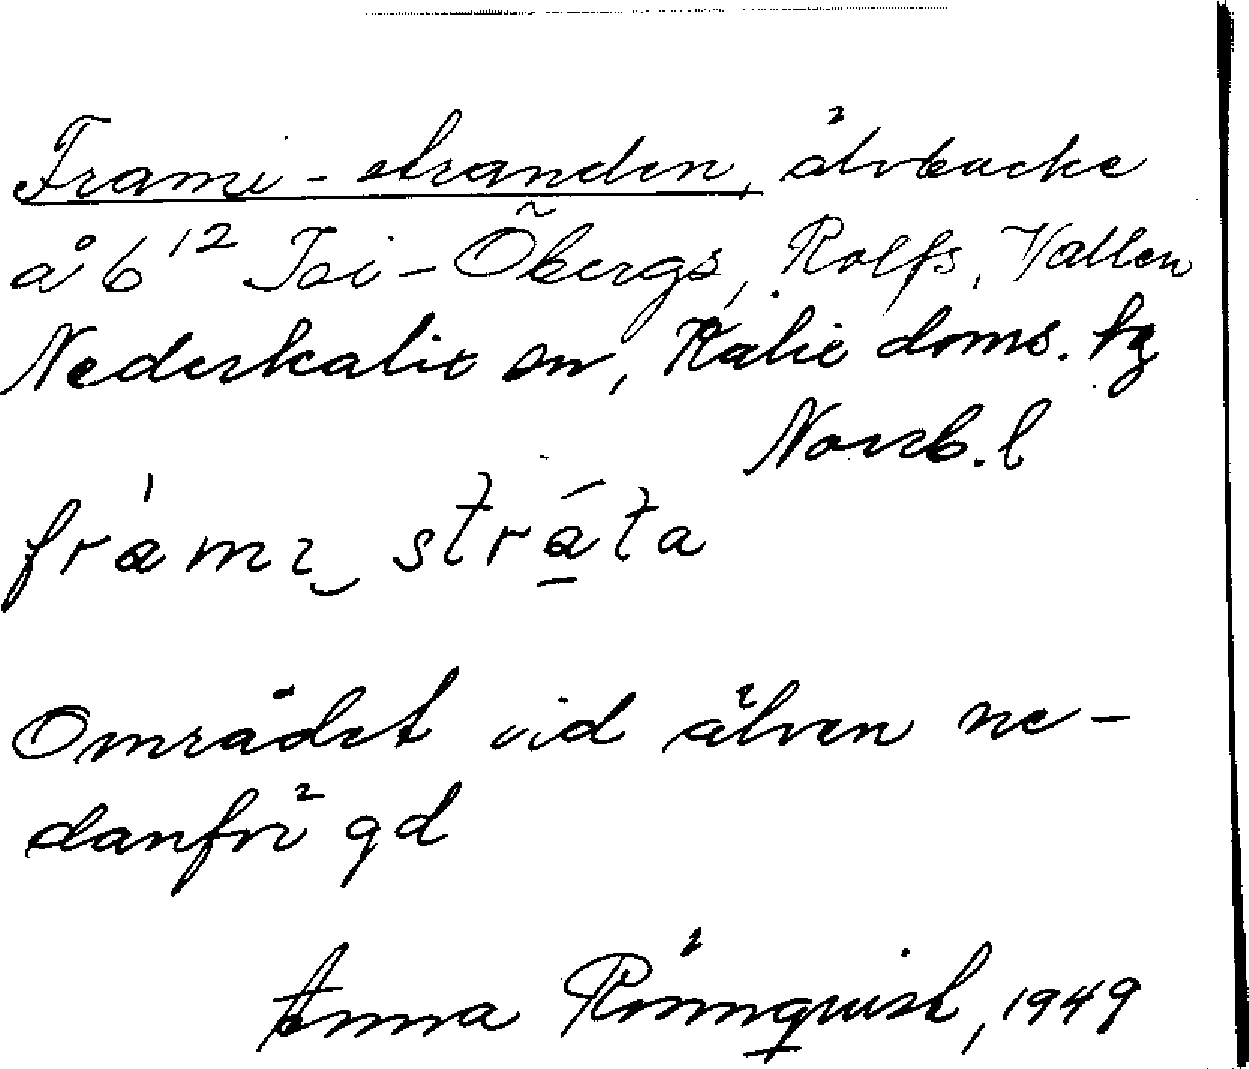 Frami-stranden, älvbacke
å 6¹² Isi-Öbergs, Rolfs, Vallen
Nederkalix sn, Kalix doms. tg
Norrb. l
frami stráta
Området vid älven ne-
danför gd
Anna Rönnquist, 1949